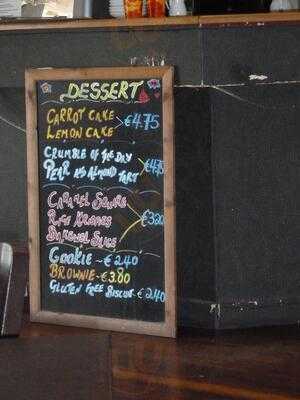 DESSERT
CARROT CAKE €4.75
LEMON CAKE
CRUMBLE OF THE DAY
PEAR AND ALMOND TART
CARAMEL SQUARE
BAKEWELL SLICE
COOKIE - € 2.40
BROWNIE - €3.00
GLUTEN FREE BISCUIT - € 2.40